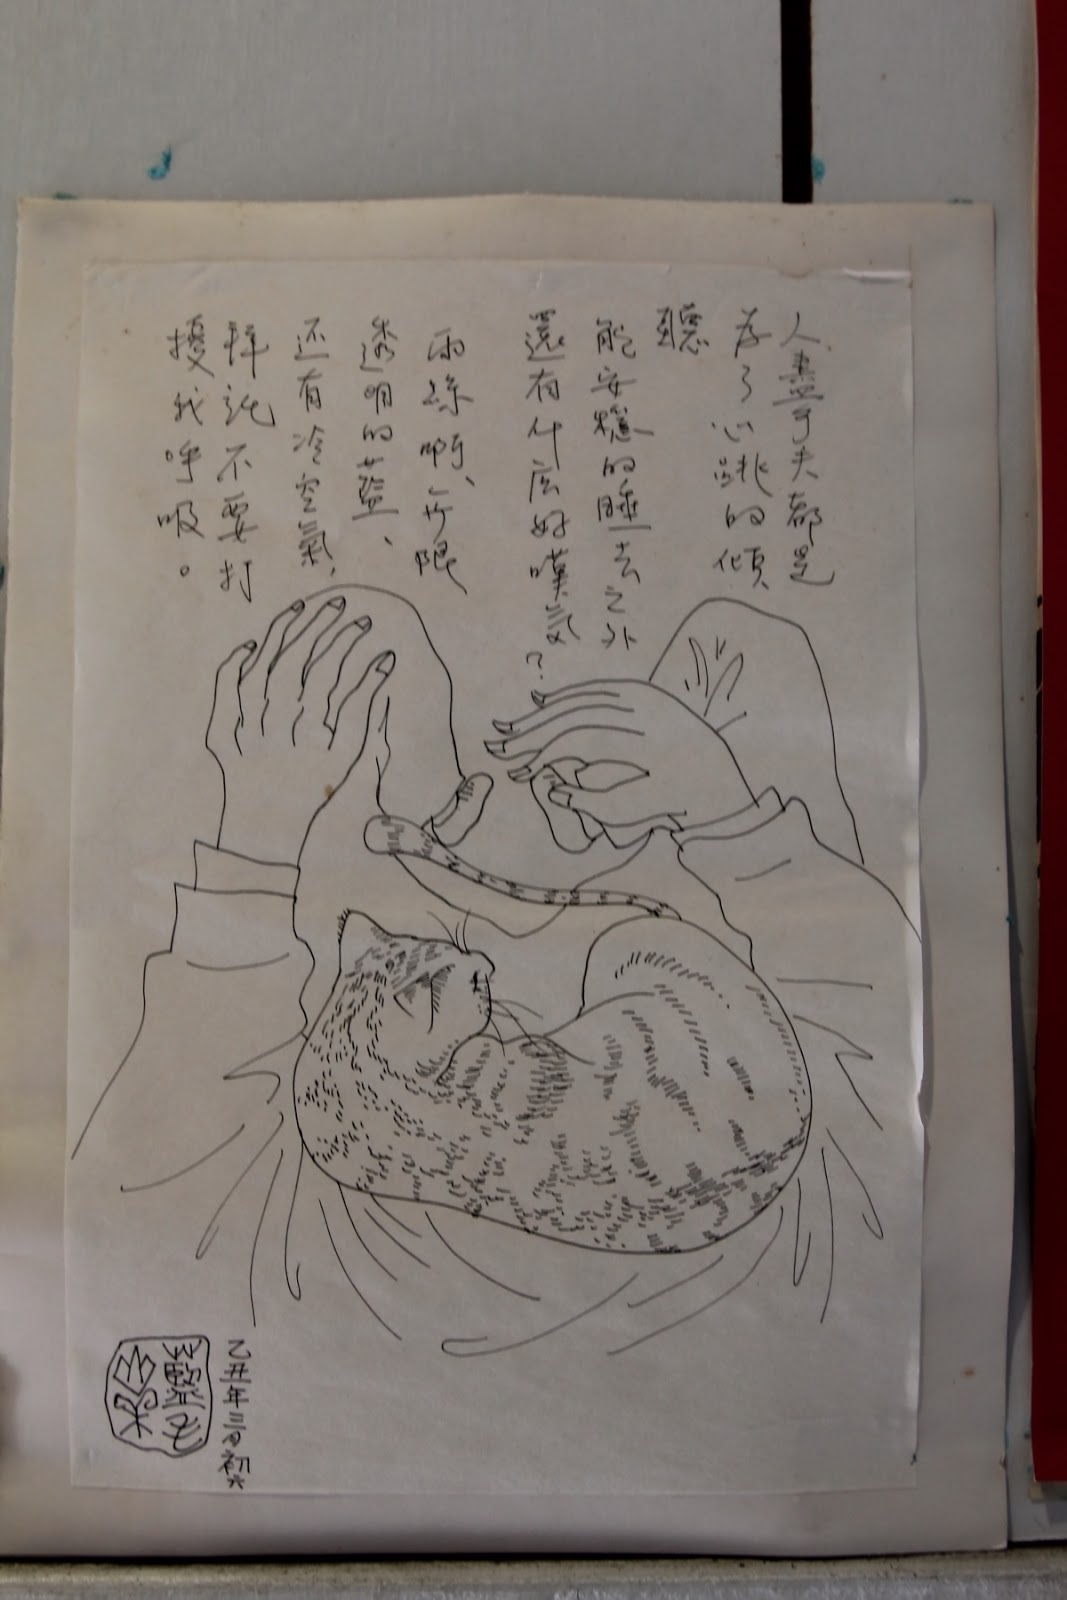 人盡可夫都是
為了心跳的傾
聽
能安穩的睡去之外
還有什庅好嘆氣？
雨絲啊、無限
透明的藍、
还有冷空氣、
拜託不要打
擾我呼吸。
乙丑年三月初六